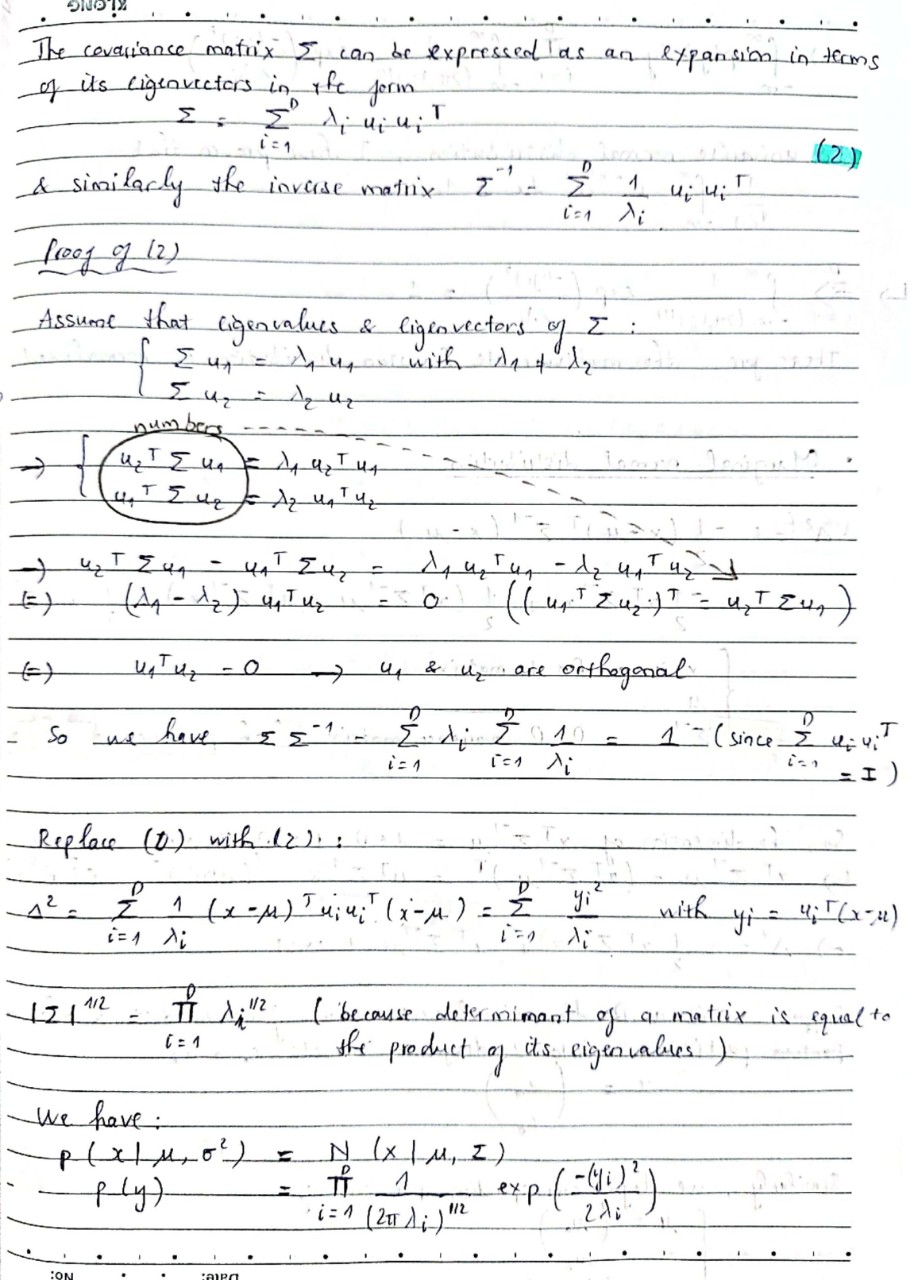 KLONG
The covariance matrix Σ can be expressed as an expansion in terms
of its eigenvectors in the form
Σ = Σ_{i=1}^{D} λ_i u_i u_i^T
(2)
& similarly the inverse matrix Σ^{-1} = Σ_{i=1}^{D} 1/λ_i u_i u_i^T
Proof of (2)
Assume that eigenvalues & eigenvectors of Σ :
{ Σ u_1 = λ_1 u_1 with λ_1 ≠ λ_2
Σ u_2 = λ_2 u_2
numbers
→ { u_2^T Σ u_1 = λ_1 u_2^T u_1
u_1^T Σ u_2 = λ_2 u_1^T u_2
→) u_2^T Σ u_1 - u_1^T Σ u_2 = λ_1 u_2^T u_1 - λ_2 u_1^T u_2
(=) (λ_1 - λ_2) u_1^T u_2 = 0 ((u_1^T Σ u_2)^T = u_2^T Σ u_1)
(=) u_1^T u_2 = 0 → u_1 & u_2 are orthogonal
- So we have Σ Σ^{-1} = Σ_{i=1}^{D} λ_i Σ_{i=1}^{D} 1/λ_i = 1 (since Σ_{i=1}^{D} u_i u_i^T
= I)
Replace (1) with (2) :
Δ^2 = Σ_{i=1}^{D} 1/λ_i (x-μ)^T u_i u_i^T (x-μ) = Σ_{i=1}^{D} y_i^2/λ_i with y_i = u_i^T(x-μ)
|Σ|^{1/2} = Π_{i=1}^{D} λ_i^{1/2} (because determimant of a matrix is equal to
the product of its eigenvalues)
We have :
p(x|μ, σ^2) = N (x|μ, Σ)
p(y) = Π_{i=1}^{D} 1/(2π λ_i)^{1/2} exp (-(y_i)^2/2λ_i)
No:
Date: